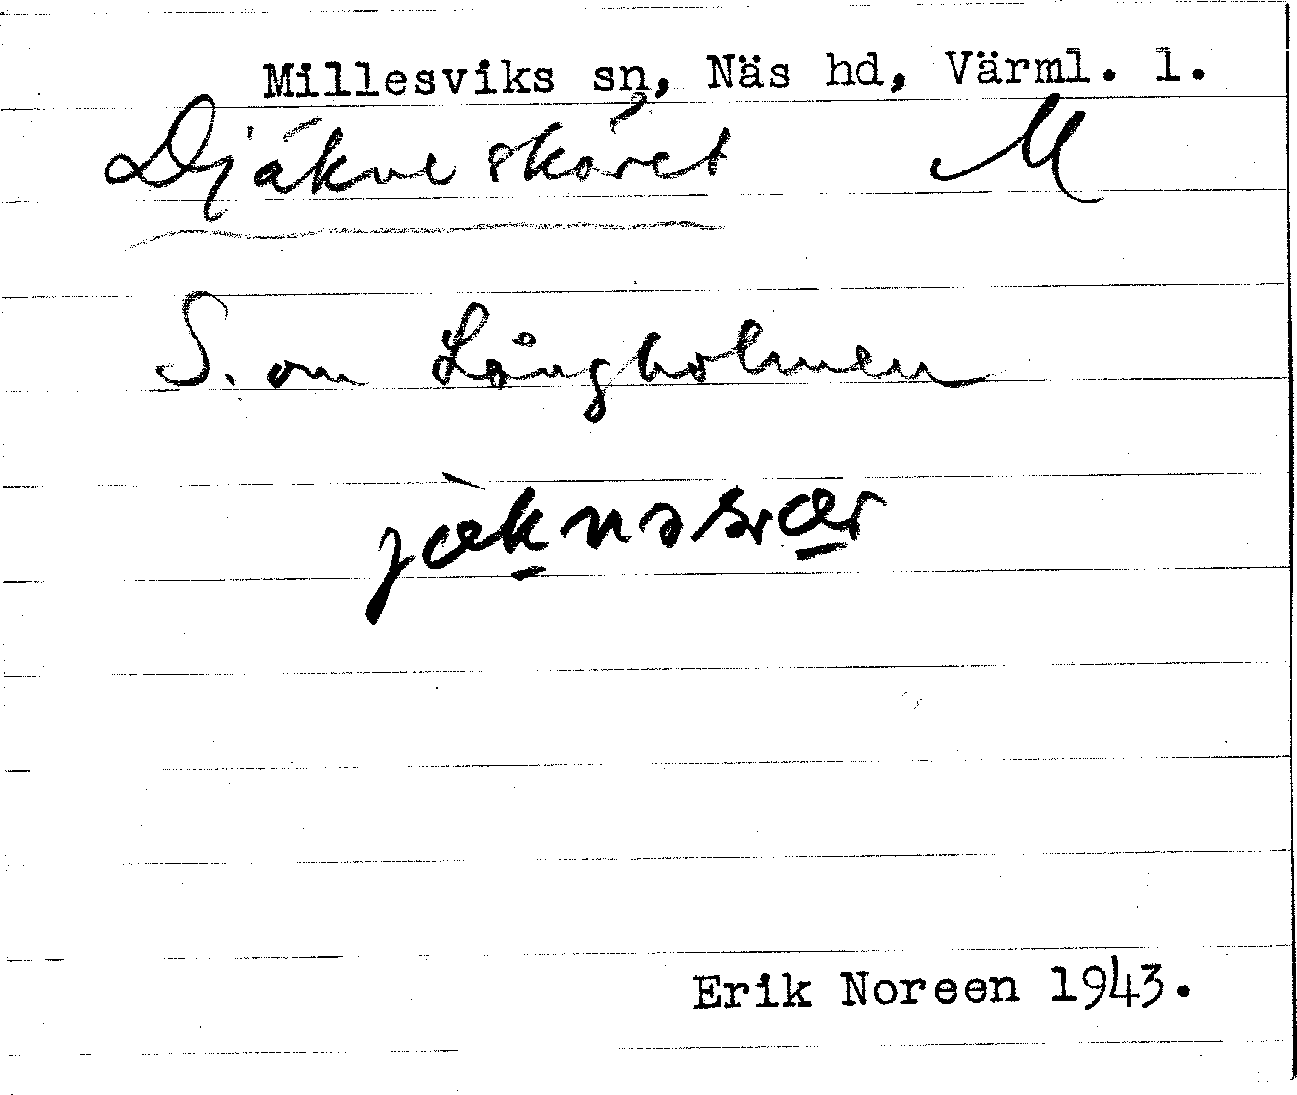 Millesviks sn, Näs hd, Värml. l.
Djäkneskäret M
S. om Långholmen
Erik Noreen 1943.